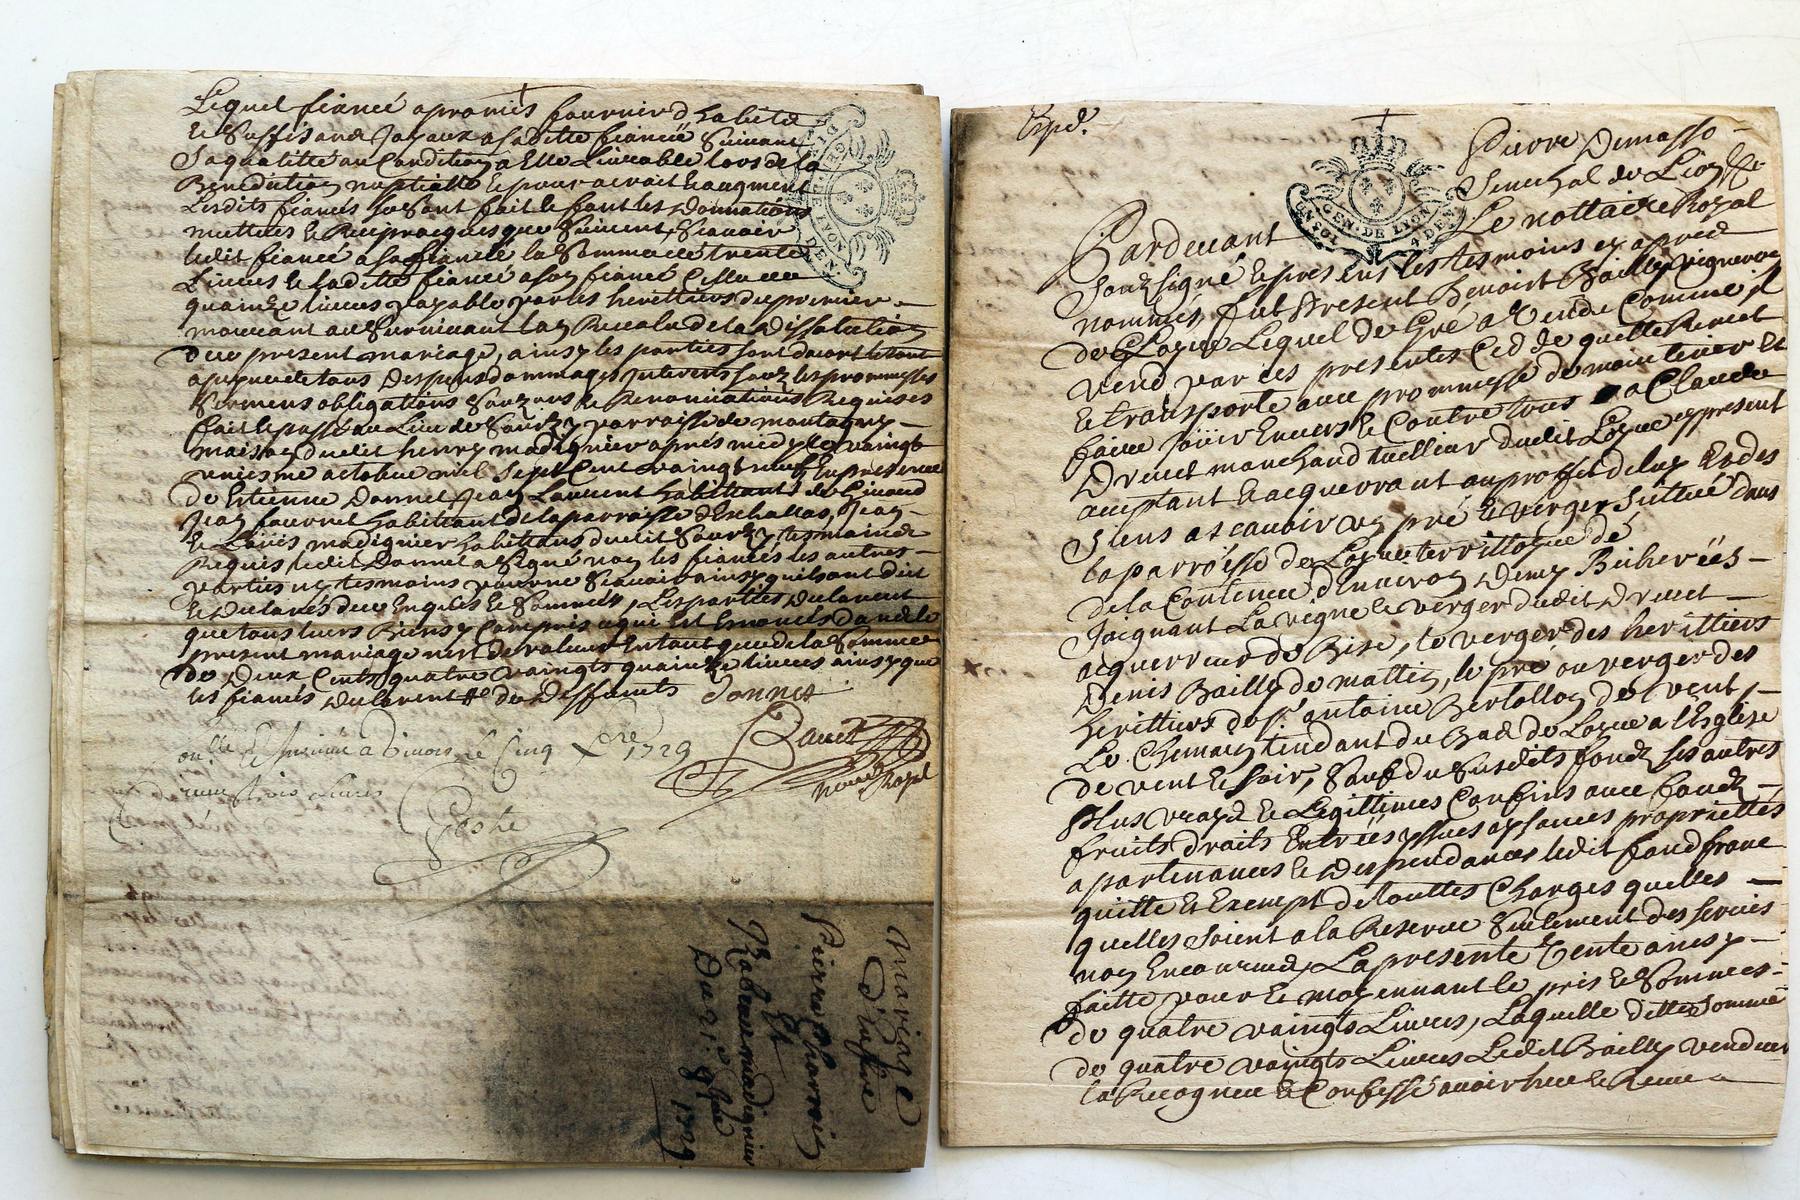 Lequel fiancé a promis fournir d'habits
et suffisans joyaux a saditte fiancée suivant
sa qualitté au Condition a Elle Livrable lors de la
Bénédiction nuptialle et pour acroit et augment
Lesdits fiancés se sont fait et font les donnations
mutuels et Reciproques que suivent, scavoir
ledit fiancé a sa fiancée la somme de trente
Livres et laditte fiancée a son fiancé Celle de
quainze livres payable par les herittiers du premier
mourant au survivant lors de la dissolution
du present mariage, ainsy les parties sont d'acort
a peyne de tous despens dommages interets soubz les prommesses
sermens obligations et Renonciations Requises
fait et passé au Lieu de Sourzy parroisse de montagny
maison dudit henry madignier aprés midy le vaingt
unieme octobre mil sept Cent vaingt neuf En presence
de Estienne Donnet Jean Laurent habittants de Givord
Jean fournel habittant de la parroisse d'Eschallas, Jean
et Loüis madignier habittans dudit Sourzy tesmoins
Requis ledit Donnet a signé non les fiancés les autres
parties ny tesmoins pour ne scavoir ainsy qu'ils ont dit
et declarés de ce Enquis et Sommés, Les parties declarent
que tous leurs Biens y Compris ce qui Est Enoncés dans le
present mariage n'est de valeur En tout que de la Somme
de deux Cents quatre vaingts quainze livres ainsy que
les fiancés declarent de deffunts Donnet
a Givors le Cinq Xbre 1729
trois Livres
nore Royal
mariage
d'Entre
Pierre Charroin
Et
Roberte madignier
Du 21e 8bre
1729
Expd.
Pierre Dumas
Senechal de Lion
Pardevant Le nottaire Royal
GEN. DE LYON
4 DEN.
Soubzsigné et presens les tesmoins cy aprés
nommés, fut Present Benoist Bailly vigneron
de Lozue Lequel de Gré a Vendu Comme il
vend par ces presentes Ced de quitte Remet
et transporte avec prommesse de maintenir et
faire Joüir Envers et Contre tous a Claude
Drevet marchand tuillieur dudit Lozue cy present
aceptant et acquerrant au proffit de luy Et des
Siens ascavoir un pré et verger Sittué dans
la parroisse de Lozue territtoyre de
de la Contenue d'Environ Demy Bicherées
Joignant La vigne et verger dudit Drevet
acquerreur de Bise, le verger des herittiers
Denis Bailly de mattin, le pré ou verger des
herittiers de Sr. antoine Bertollon de vent
Le Chemain tendant du Bas de Lozue a l'Eglise
de vent et soir, Sauf du susdits fondz ses autres
Plus vrays et Legittimes Confins avec fondz
fruits droits Entrées yssues aysances propriettés
apartenances et dependances ledit fond franc
quitte et Exempt de touttes Charges quelles
quelles soient a la Reserve seulement des servis
non Encourues, La presente Vente ainsy
faitte pour et moyennant le pris et Sommes
de quatre vaingts Livres, Laquelle ditte Somme
de quatre vaingts Livres Ledit Bailly vendeur
la Recognue et Confessé avoir heu et Receu